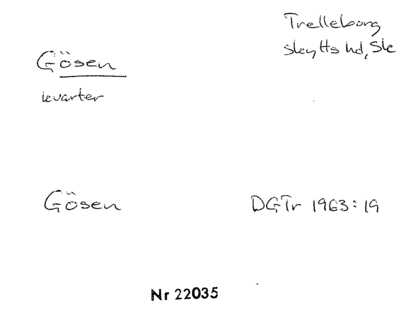 Trelleborg
Skytts hd, Sk
Gösen
kvarter
Gösen
DGTr 1963:19
Nr 22035